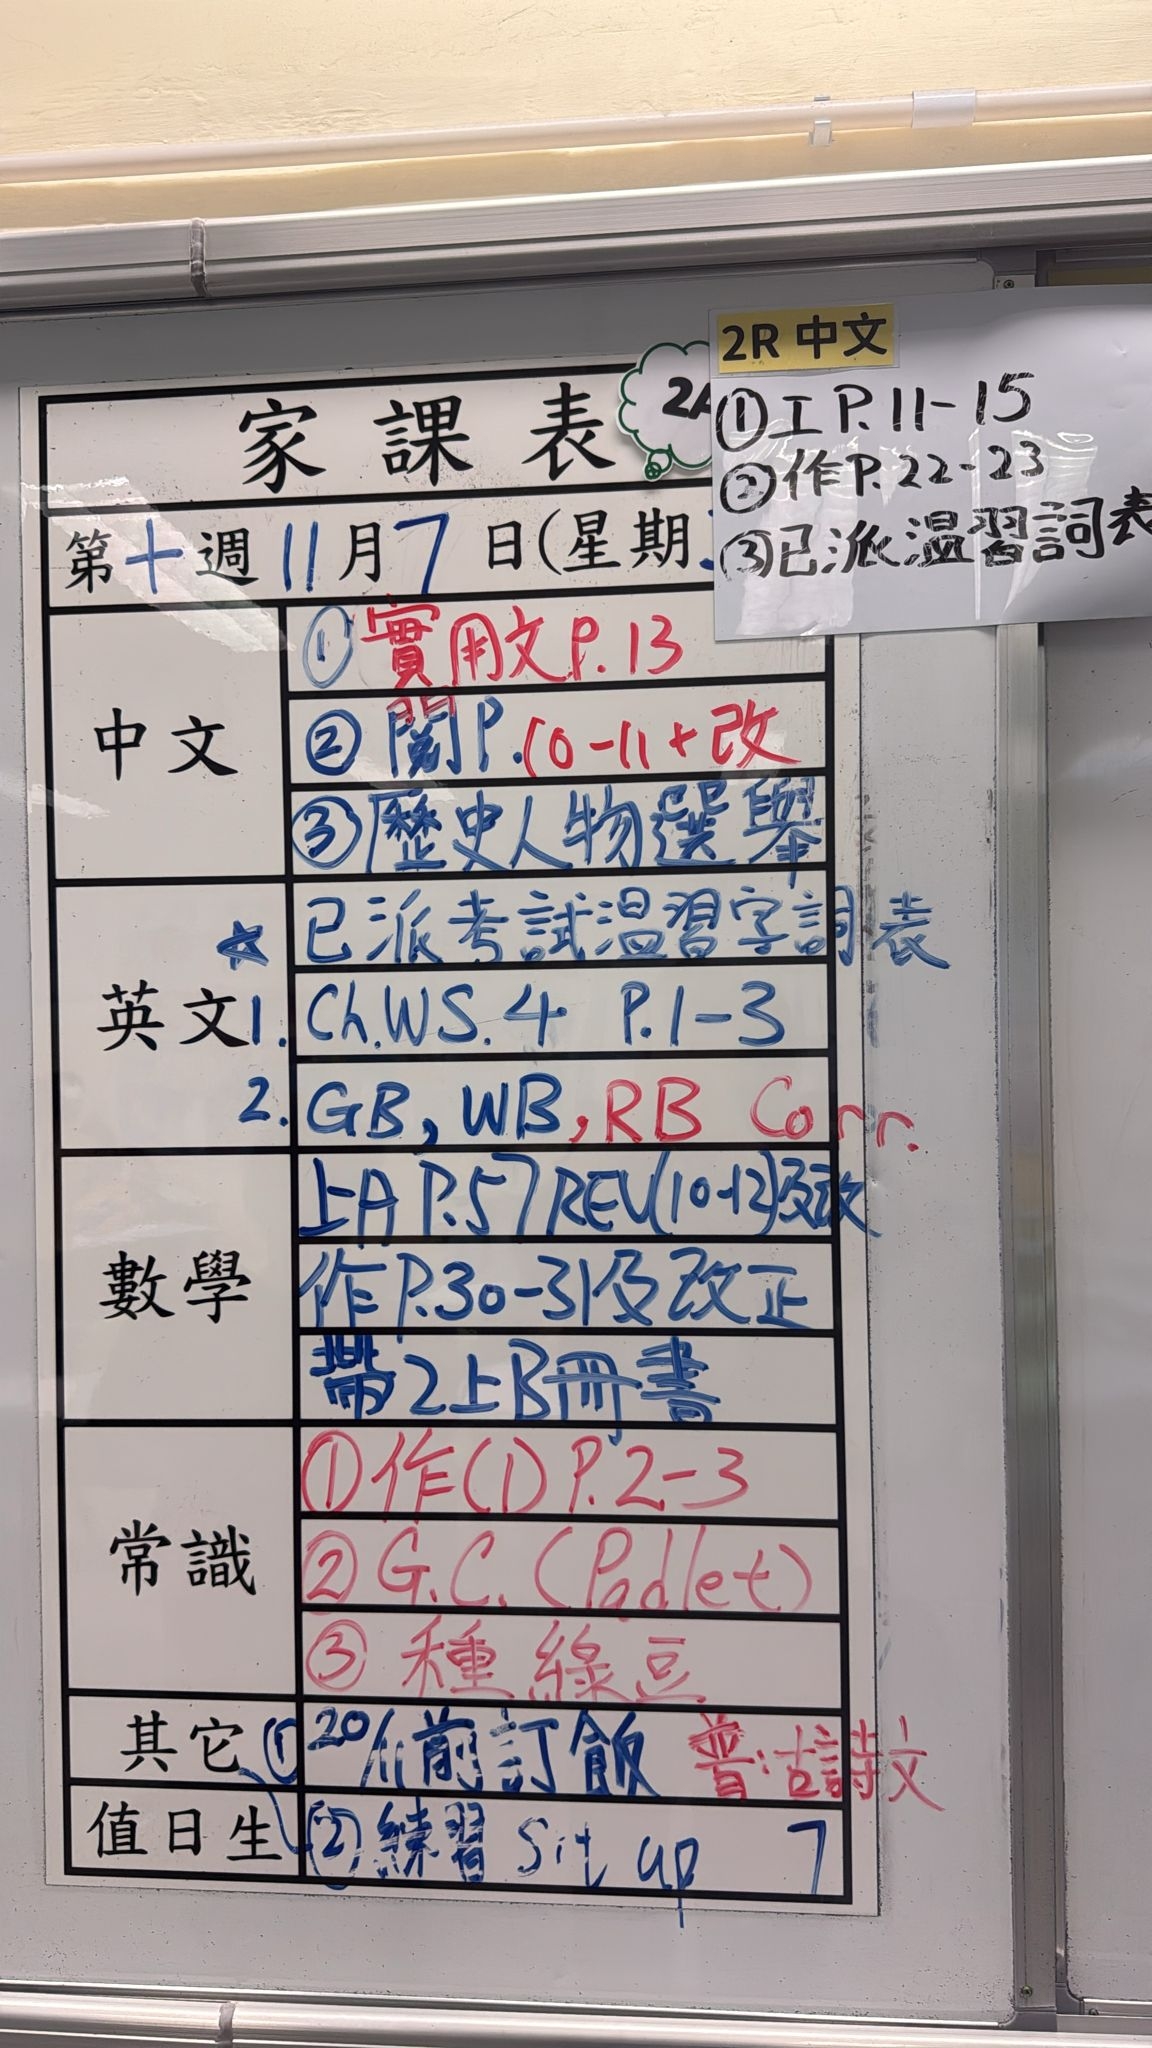 家課表
2A
2R 中文
①工P.11-15
②作P.22-23
③已派溫習詞表
第十週11月7日(星期
中文
①實用文P.13
②閱P.10-11+改
③歷史人物選舉
英文
☆已派考試溫習字詞表
1. Ch.WS.4 P.1-3
2. GB, WB, RB Corr.
數學
上A P.57REV(10-12)及改
作P.30-31及改正
帶2上B冊書
常識
①作(1)P.2-3
②G.C.(Padlet)
③種綠豆
其它
①20/11前訂飯 普:古詩文
值日生
②練習 Sit up 7